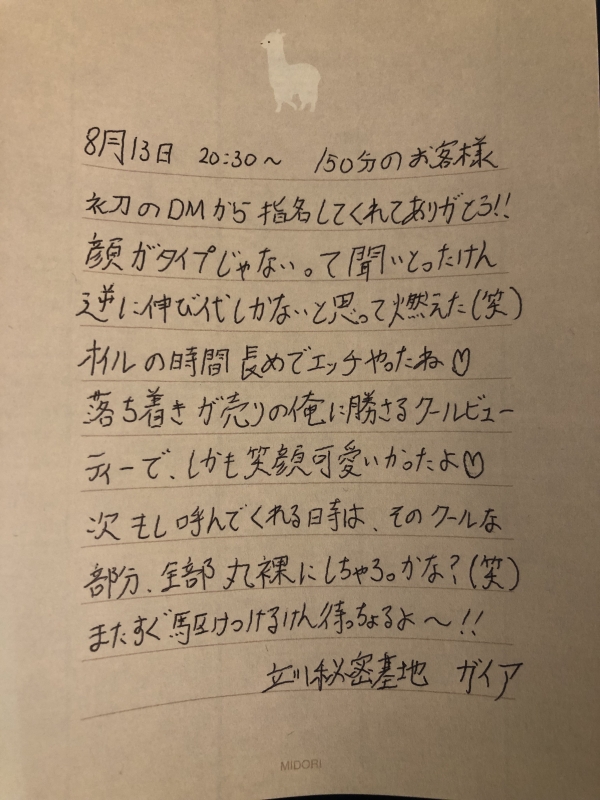 8月13日 20:30〜 150分のお客様
初のDMから指名してくれてありがとう!!
顔がタイプじゃない。って聞いとったけん
逆に伸び代しかないと思って燃えた(笑)
オイルの時間長めでエッチやったね♡
落ち着きが売りの俺に勝さるクールビュー
ティーで、しかも笑顔可愛いかったよ♡
次もし呼んでくれる日時は、そのクールな
部分、全部丸裸にしちゃろ。かな?(笑)
またすぐ駆けつけるけん待っちょるよ〜!!
立川秘密基地 ガイア
MIDORI